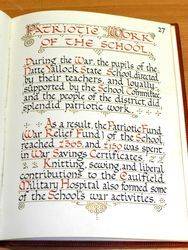 27
PATRIOTIC WORK
OF THE SCHOOL
During the War, the pupils of the
Hatte Vilock State School, directed
by their teachers, and loyally
supported by the School Committee
and the people of the district, did
splendid patriotic work.
As a result, the Patriotic Fund
(War Relief Fund) of the School
reached £305, and £150 was spent
in War Savings Certificates.
Knitting, sewing, and liberal
contributions to the Caulfield
Military Hospital also formed some
of the School's war activities.